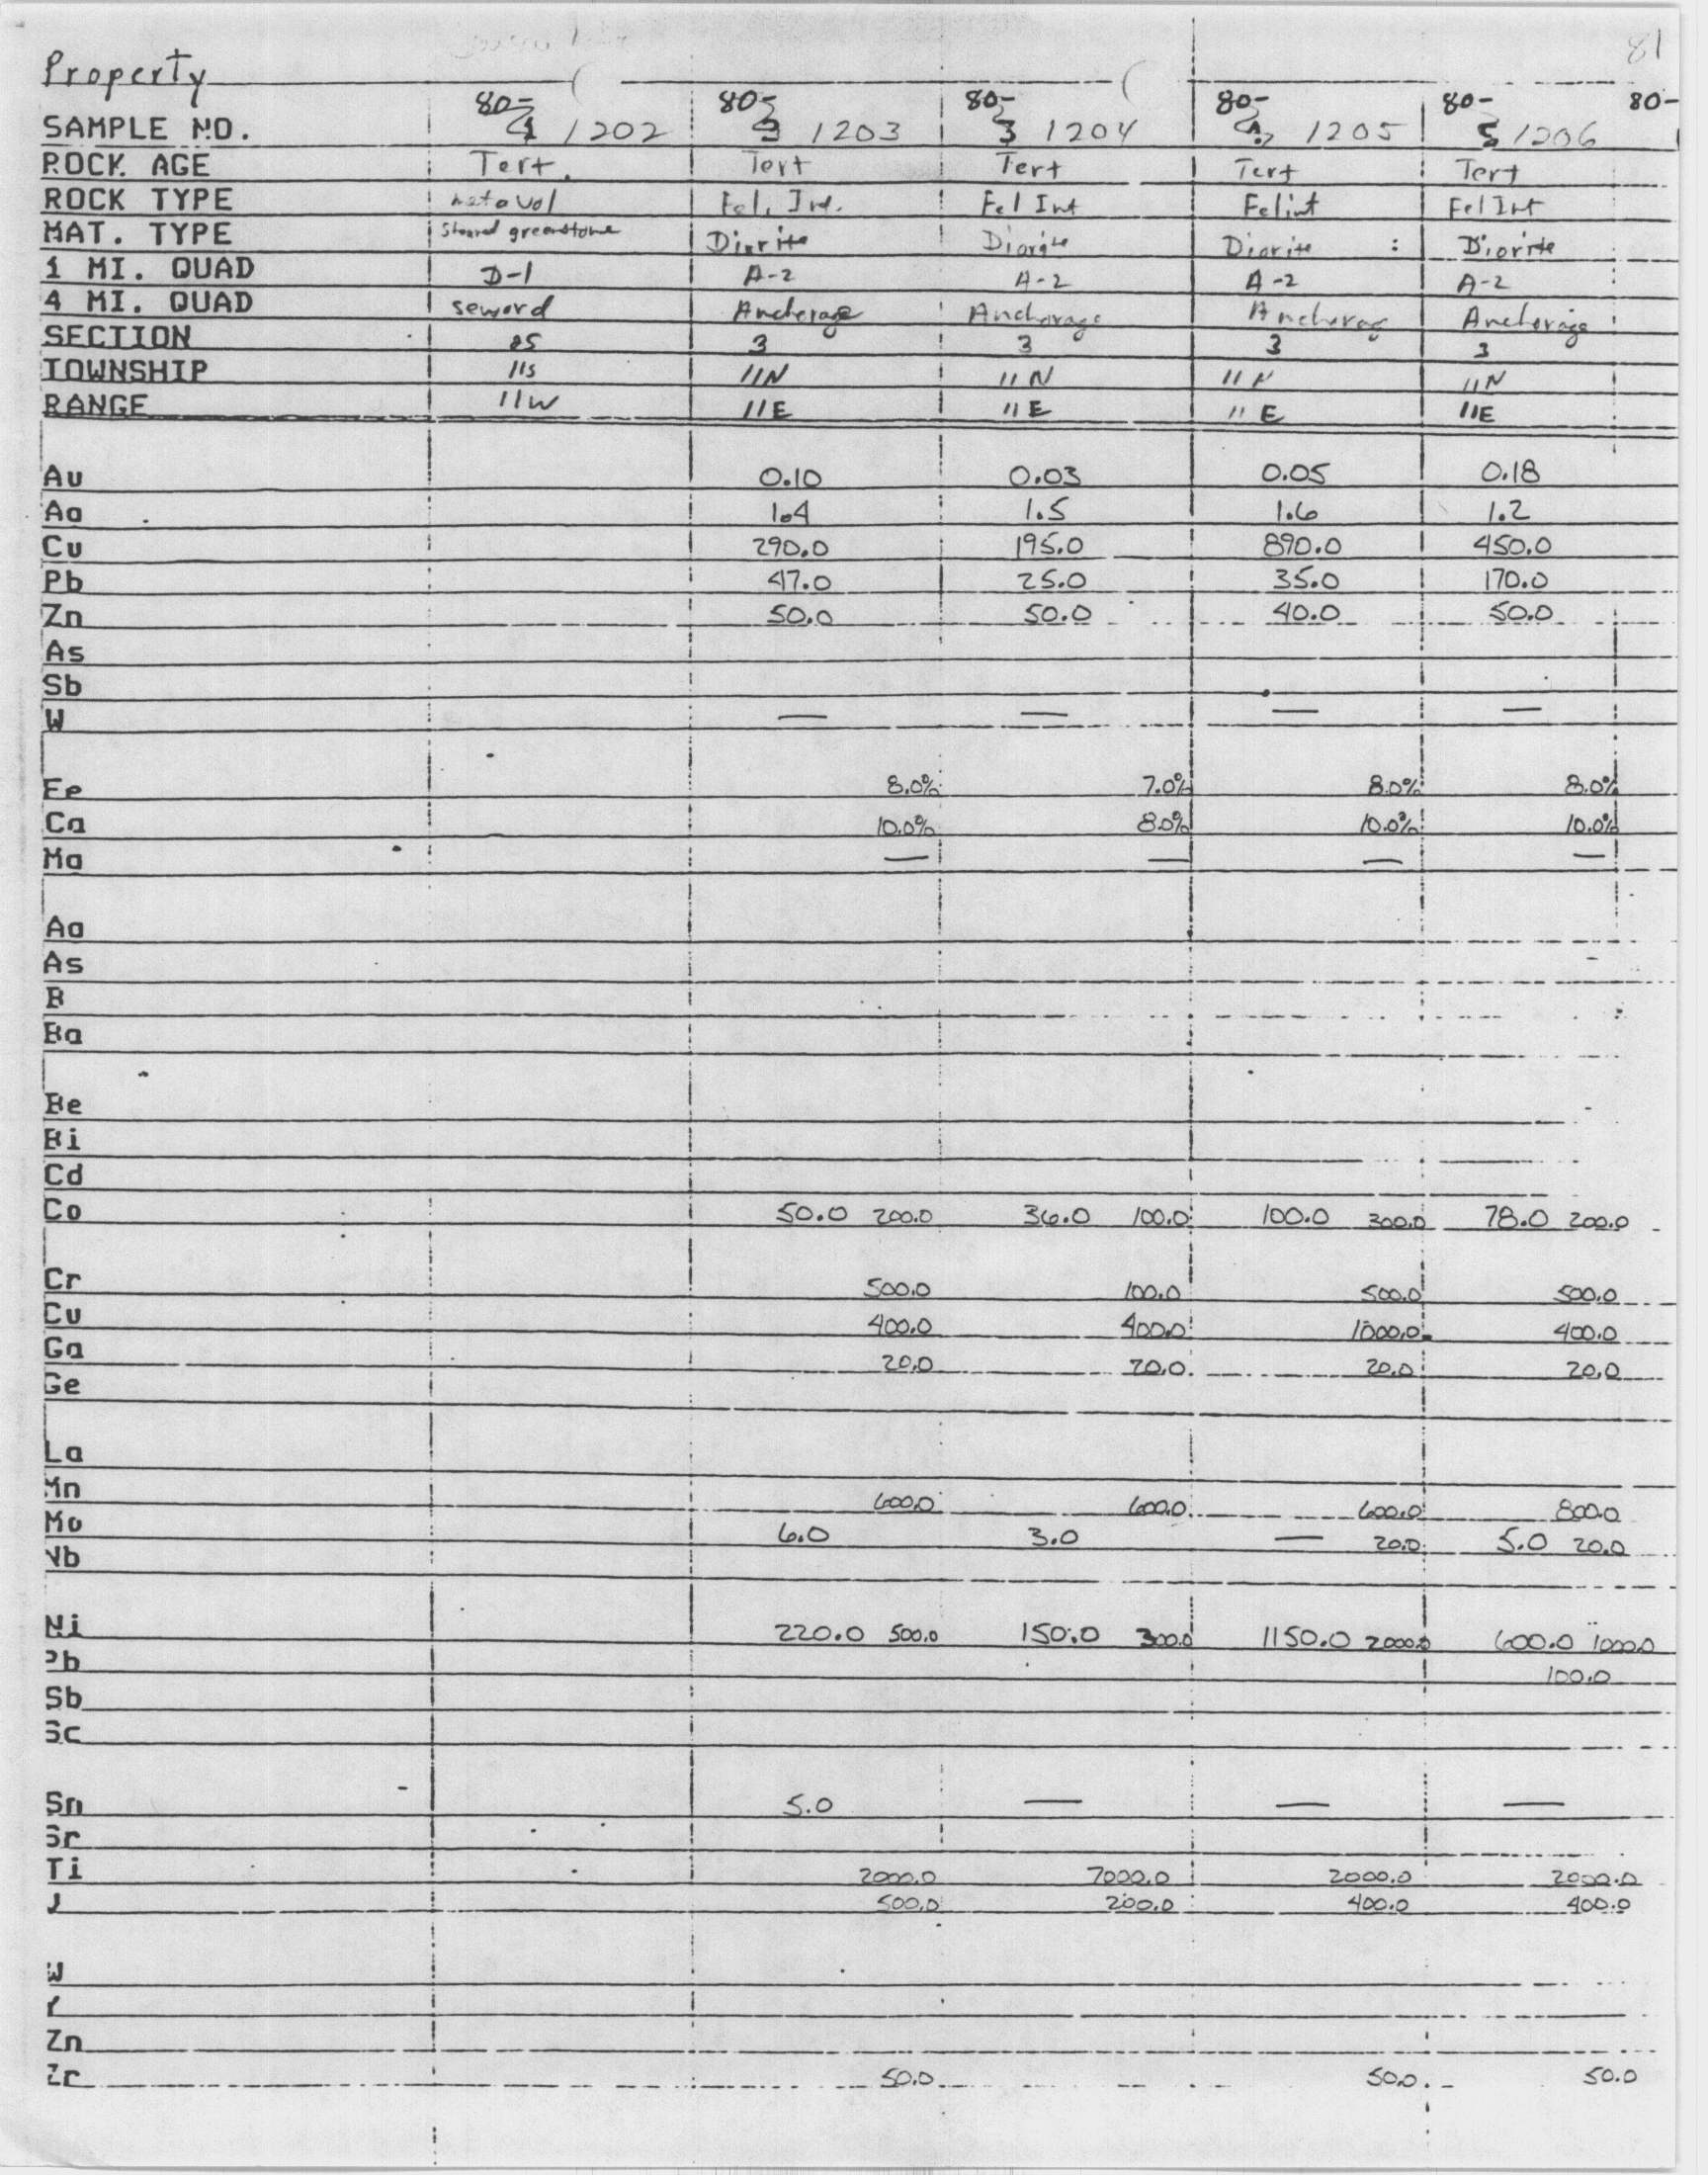 81
Property
80- 80- 80- 80- 80- 80-
SAMPLE NO. 1 1202 1203 3 1204 1205 5 1206
ROCK AGE Tert. Tert Tert Tert Tert
ROCK TYPE metavol Fel. Int. Fel Int Felint Fel Int
MAT. TYPE Sheared greenstone Diorite Diorite Diorite : Diorite
1 MI. QUAD D-1 A-2 A-2 A-2 A-2
4 MI. QUAD seward Anchorage Anchorage Anchorag Anchorage
SECTION 25 3 3 3 3
TOWNSHIP 11S 11N 11N 11N 11N
RANGE 11W 11E 11E 11E 11E
Au 0.10 0.03 0.05 0.18
Ag 1.4 1.5 1.6 1.2
Cu 290.0 195.0 890.0 450.0
Pb 47.0 25.0 35.0 170.0
Zn 50.0 50.0 40.0 50.0
As
Sb
W — — — —
Fe 8.0% 7.0% 8.0% 8.0%
Ca 10.0% 8.0% 10.0% 10.0%
Mg — — — —
Ag
As
B
Ba
Be
Bi
Cd
Co 50.0 200.0 36.0 100.0 100.0 300.0 78.0 200.0
Cr 500.0 100.0 500.0 500.0
Cu 400.0 400.0 1000.0 400.0
Ga 20.0 20.0 20.0 20.0
Ge
La
Mn 600.0 600.0 600.0 800.0
Mo 6.0 3.0 — 20.0 5.0 20.0
Nb
Ni 220.0 500.0 150.0 300.0 1150.0 2000.0 600.0 1000.0
Pb 100.0
Sb
Sc
Sn 5.0 — — —
Sr
Ti 2000.0 7000.0 2000.0 2000.0
V 500.0 200.0 400.0 400.0
W
Y
Zn
Zr 50.0 50.0 50.0